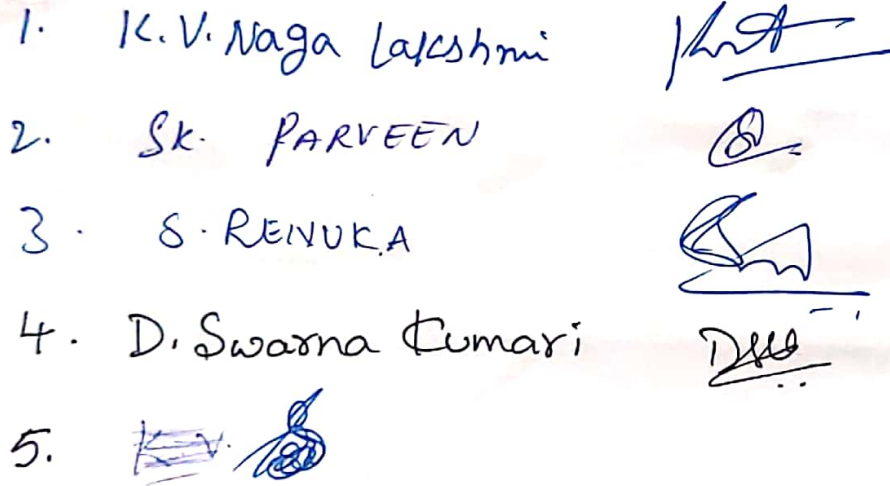 1. K.V. Naga Lakshmi
2. SK. PARVEEN
3. S. RENUKA
4. D. Swarna Kumari
5.